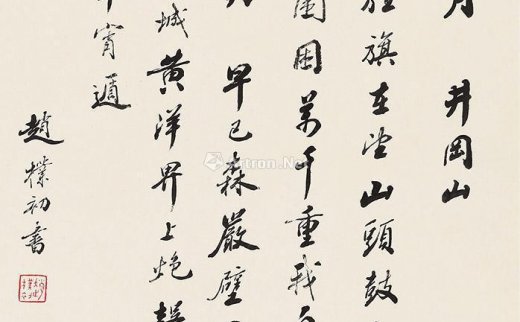 月 井岡山
旌旗在望山頭鼓
圍困萬千重我
早已森嚴壁
城黃洋界上炮
宵遁
趙樸初書
Artron.Net